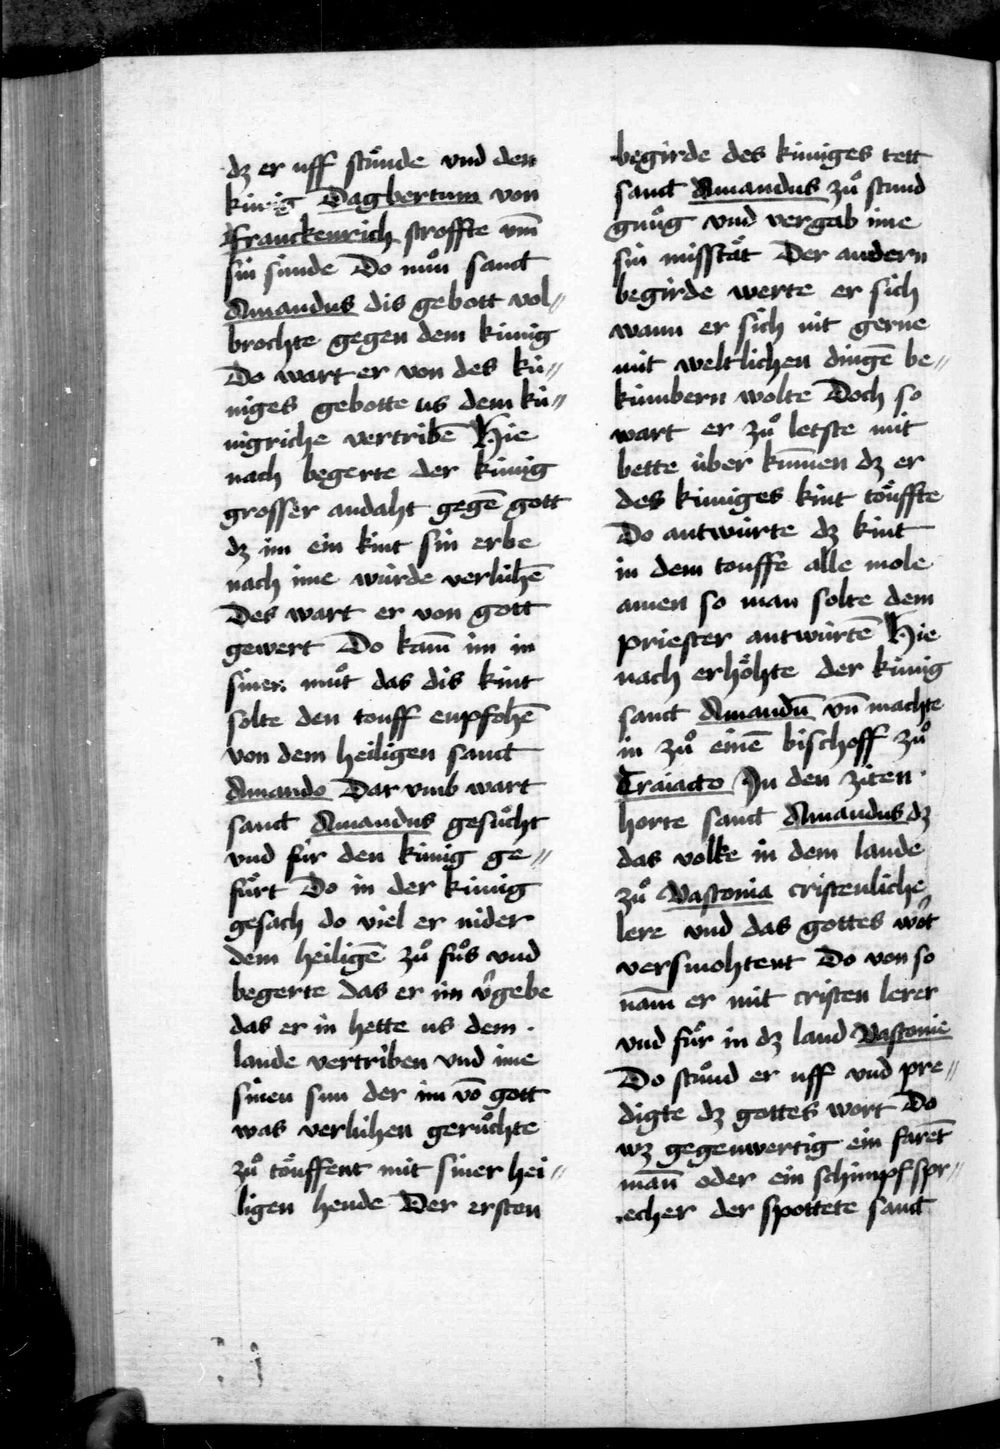 dz er uff stuͦnde vnd den
kúnig Dagbertum von
Franckenrich stroffte vm̄
sin sunde Do nuͦn sanct
Amandus dis gebott vol⸗
brochte gegen dem kúnig
Do wart er von des kú⸗
niges gebotte us dem kú⸗
nigriche vertribē Hie
nach begerte der kúnig
grosser andaht gegē gott
dz im ein kint sin erbe
nach ime wúrde verluhē
Des wart er von gott
gewert Do kam̄ im in
siner muͦt das dis kint
solte den touff enpfohē
von dem heiligen sanct
Amando Dar vmb wart
sanct Amandus gesuͦcht
vnd fúr den kúnig ge⸗
fuͤrt Do in der kúnig
gesach do viel er nider
dem heiligē zuͦ fuͦs vnd
begerte das er im v̾gebe
das er in hette us dem
lande vertriben vnd ime
sinen sun der im vō gott
was verluhen geruͦchte
zuͦ toͤuffent mit siner hei⸗
ligen hende Der ersten
begirde des kúniges tett
sanct Amandus zuͦ stund
gnuͦg vnd vergab ime
sin misstaͤt Der andern
begirde werte er sich
wann er sich nit gerne
mit weltlichen dingē be⸗
kúmbern wolte Doch so
wart er zuͦ letste mit
bette úber kum̄en dz er
des kúniges kint toͤuffte
Do antwúrte dz kint
in dem touffe alle mole
amen so man solte dem
priester antwúrtē Hie
nach erhoͤhte der kúnig
sanct Amandū vn̄ machte
in zuͦ einē bischoff zuͦ
Traiacto In den ziten
horte sanct Amandus dz
das volke in dem lande
zuͦ Vastonia cristenliche
lere vnd das gottes wo̾t
versmohtent Do von so
nam̄ er mit cristen lerer
vnd fuͦr in dz land Vastonie
Do stuͦnd er uff vnd pre⸗
digte dz gottes wort Do
wz gegenwertig ein farēt
man̄ oder ein schimpfspr⸗
echer der spottete sanct